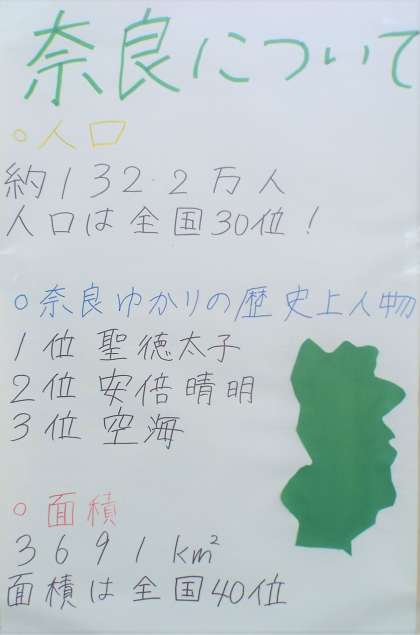 奈良について
○人口
約132.2万人
人口は全国30位！
○奈良ゆかりの歴史上人物
1位 聖徳太子
2位 安倍晴明
3位 空海
○面積
3691km²
面積は全国40位